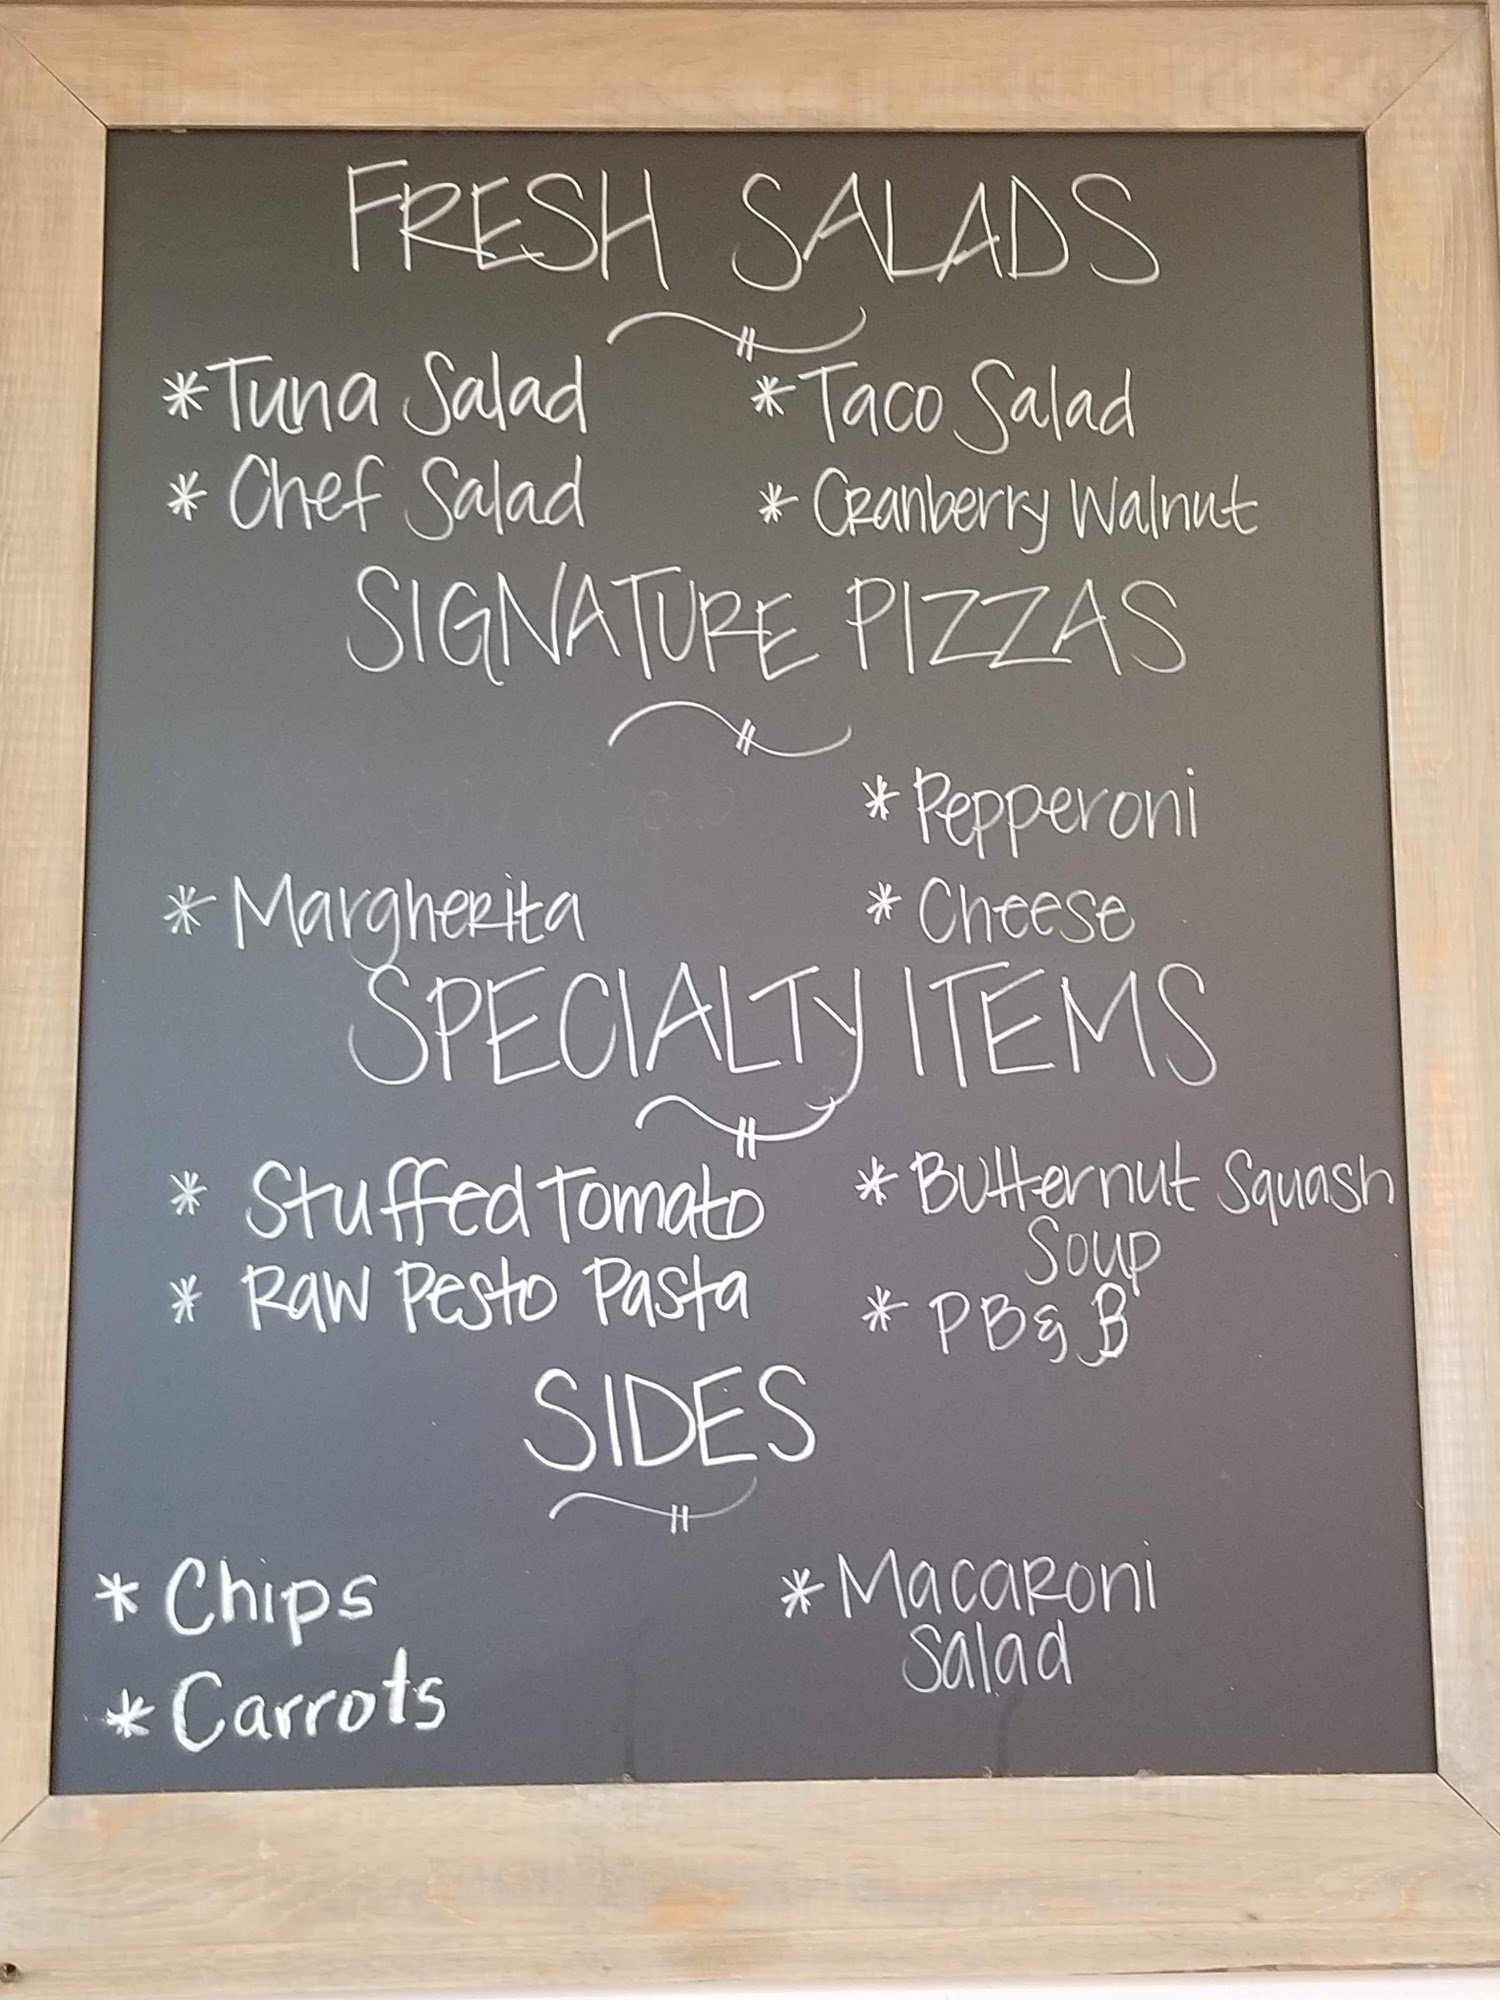 FRESH SALADS
*Tuna Salad
*Taco Salad
* Chef Salad
* Cranberry Walnut
SIGNATURE PIZZAS
* Pepperoni
* Margherita
* Cheese
SPECIALTY ITEMS
* Stuffed Tomato
* Butternut Squash
Soup
* Raw Pesto Pasta
* PB & B
SIDES
* Chips
* Macaroni
Salad
* Carrots